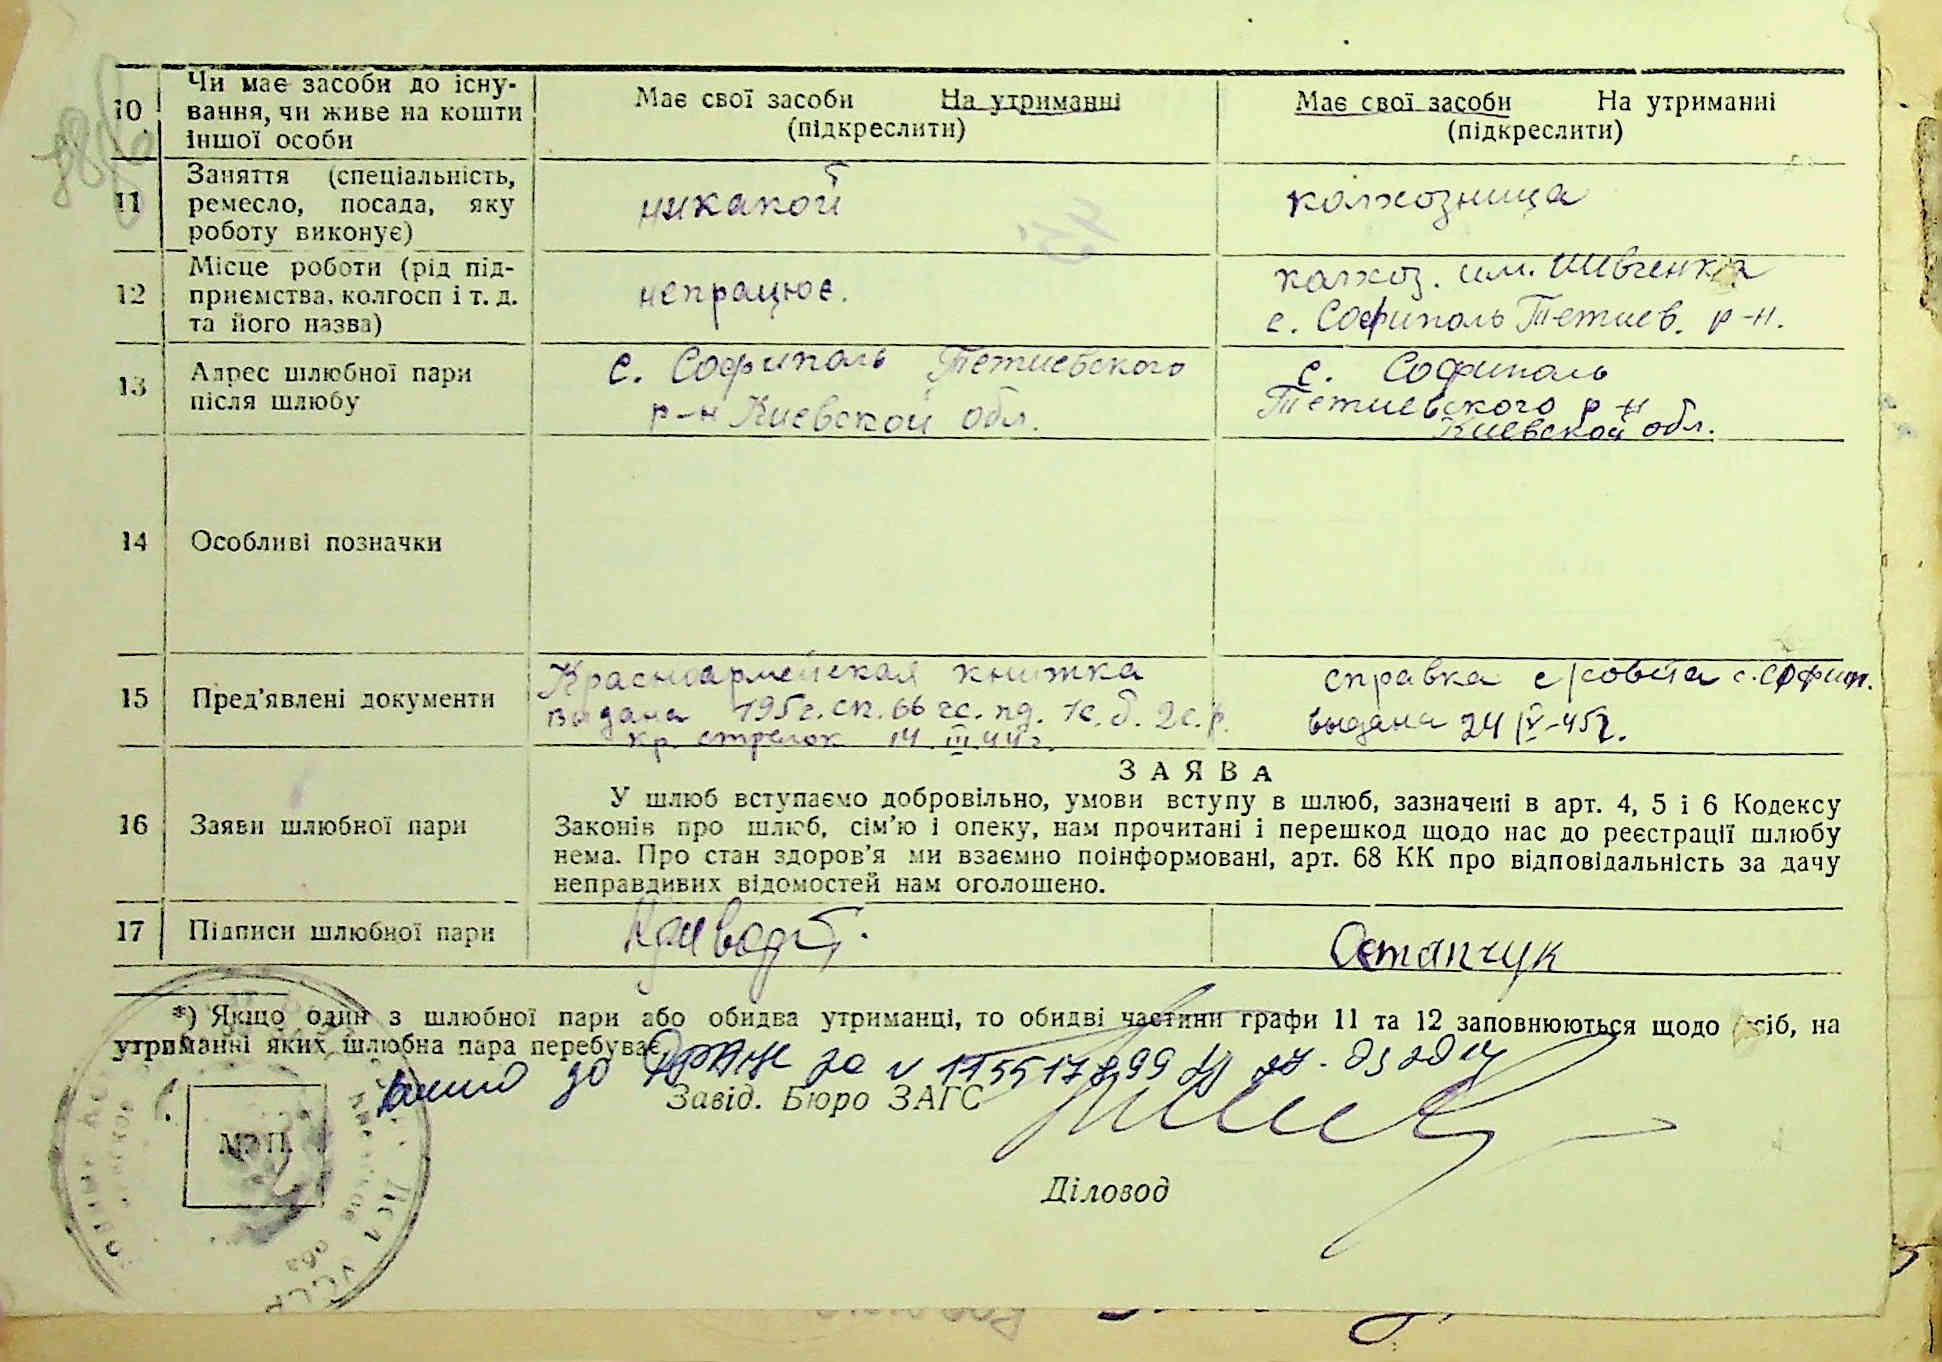 10
Чи має засоби до існу-
вання, чи живе на кошти
іншої особи
Має свої засоби На утриманні
(підкреслити)
Має свої засоби На утриманні
(підкреслити)
11
Заняття (спеціальність,
ремесло, посада, яку
роботу виконує)
никакой
колхозница
12
Місце роботи (рід під-
приємства, колгосп і т. д.
та його назва)
непрацює.
колхоз. им. Шивченка
с. Софиполь Тетиев. р-н.
13
Адрес шлюбної пари
після шлюбу
с. Софиполь Тетиевского
р-н Киевской обл.
с. Софиполь
Тетиевского р-н
Киевской обл.
14
Особливі позначки
15
Пред’явлені документи
Красноармейская книжка
выдана 195г. сп. 66 гс. пд. 1с. б. 2с. р.
кр. стрелок 14.III.44г.
справка с/совета с. Софип.
выдана 24/IV-45г.
16
Заяви шлюбної пари
ЗАЯВА
У шлюб вступаємо добровільно, умови вступу в шлюб, зазначені в арт. 4, 5 і 6 Кодексу
Законів про шлюб, сім’ю і опеку, нам прочитані і перешкод щодо нас до реєстрації шлюбу
нема. Про стан здоров’я ми взаємно поінформовані, арт. 68 КК про відповідальність за дачу
неправдивих відомостей нам оголошено.
17
Підписи шлюбної пари
Остапчук
*) Якщо один з шлюбної пари або обидва утриманці, то обидві частини графи 11 та 12 заповнюються щодо осіб, на
утриманні яких шлюбна пара перебуває
до за №
Завід. Бюро ЗАГС
М. П.
Діловод